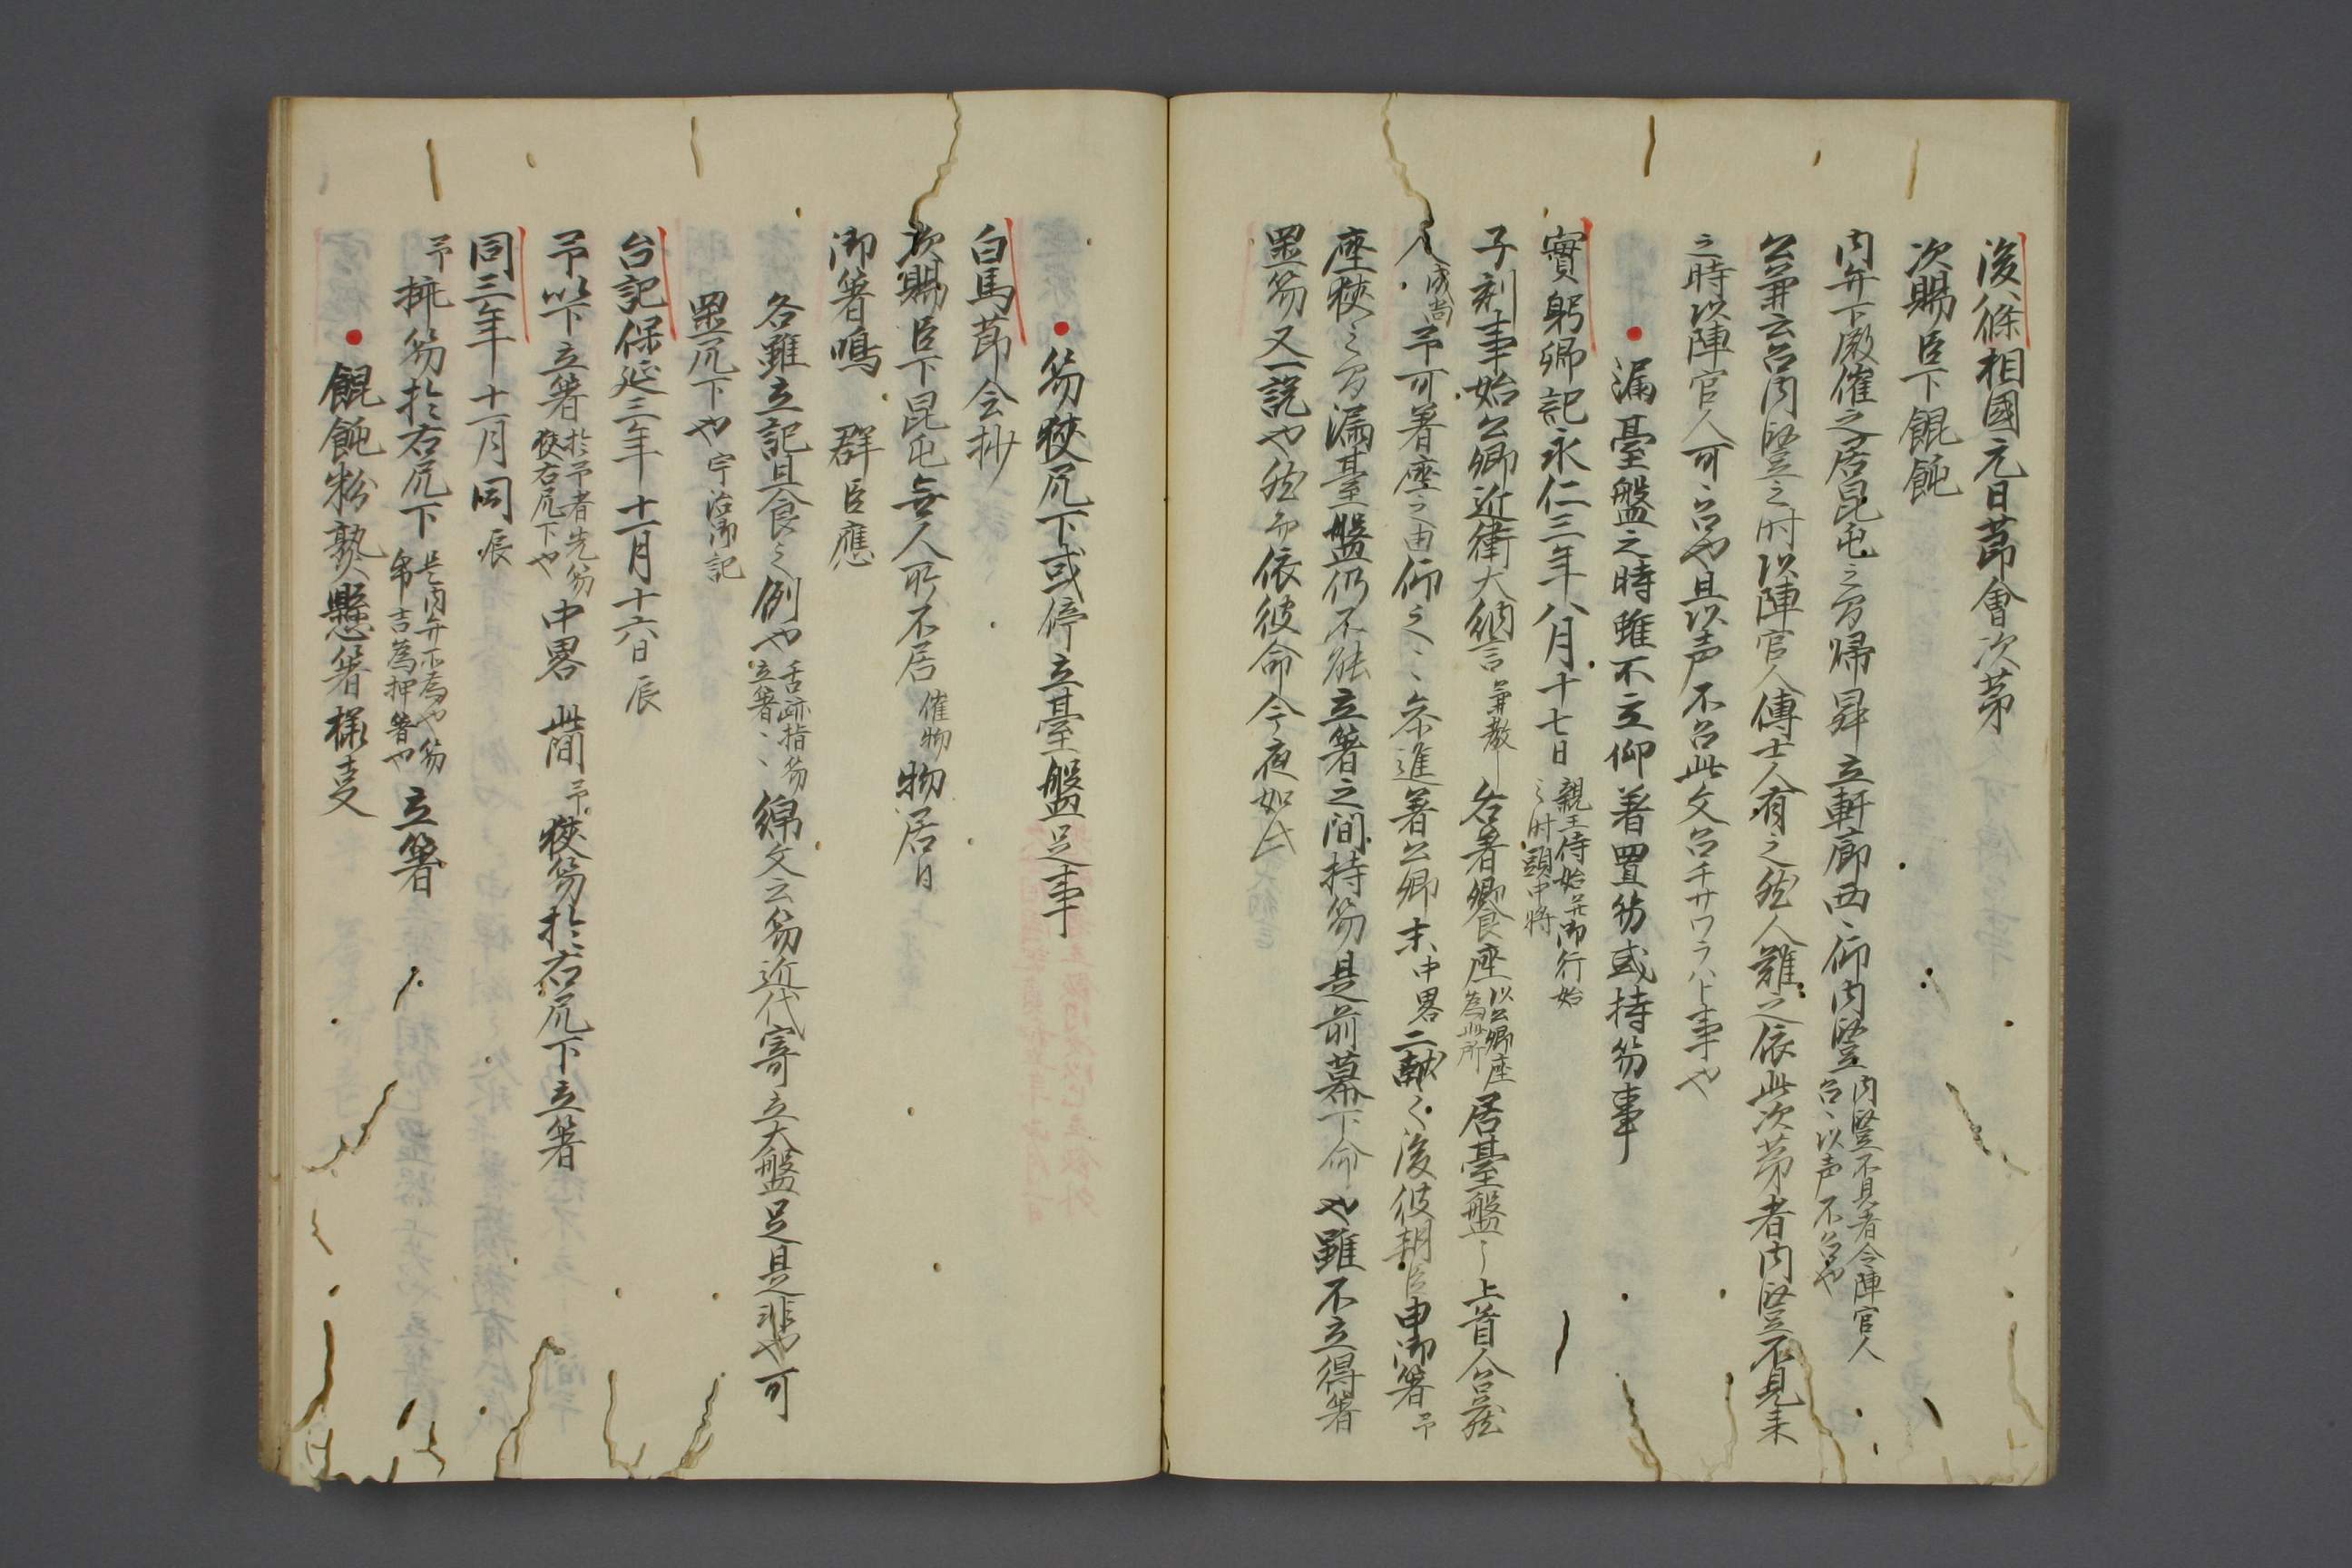 後八條相國元日節會次第
次賜臣下餛飩
内弁下殿催之居昆屯之間帰昇立軒廊西ミ仰内豎内豎不見者令陣官人召ミ以声不召也
公兼云召内豎之时以陣官人傳士人有之然人難之依此次第者内豎不見来
之時以陣官人可召也且以声不召此文召チサワラハト事也
漏臺盤之時雖不立仰箸置笏或持笏事
實躬卿記永仁三年八月十七日親王侍始并御行始之时頭中将
子刻事始公卿近衛大納言兼教各著卿食座以公卿座為此所居臺盤上首人召蔵
人成尚予可著座之由仰之ミ参進著公卿末中畧二献之後彼朝臣申御箸予
座狭之間漏臺盤仍不能立箸之間持笏是前幕下命也雖不立得箸
置笏又一説也然而依彼命今夜如此
笏狭尻下或停立臺盤足事
白馬節会抄
次賜臣下昆屯無人所不居催物物居日
御箸鳴 群臣應
各雖立記且食之例也舌跡指笏立箸ミ綿文云笏近代寄立大盤足是非也可
置尻下也宇治御記
台記保延三年十一月十六日辰
予以下立箸於予者先笏狭右尻下也中畧此間予狭笏於右尻下立箸
同三年十一月同辰
予挑笏於右尻下是内弁不為也笏第吉為押箸也立箸
餛飩粉熟懸箸様事